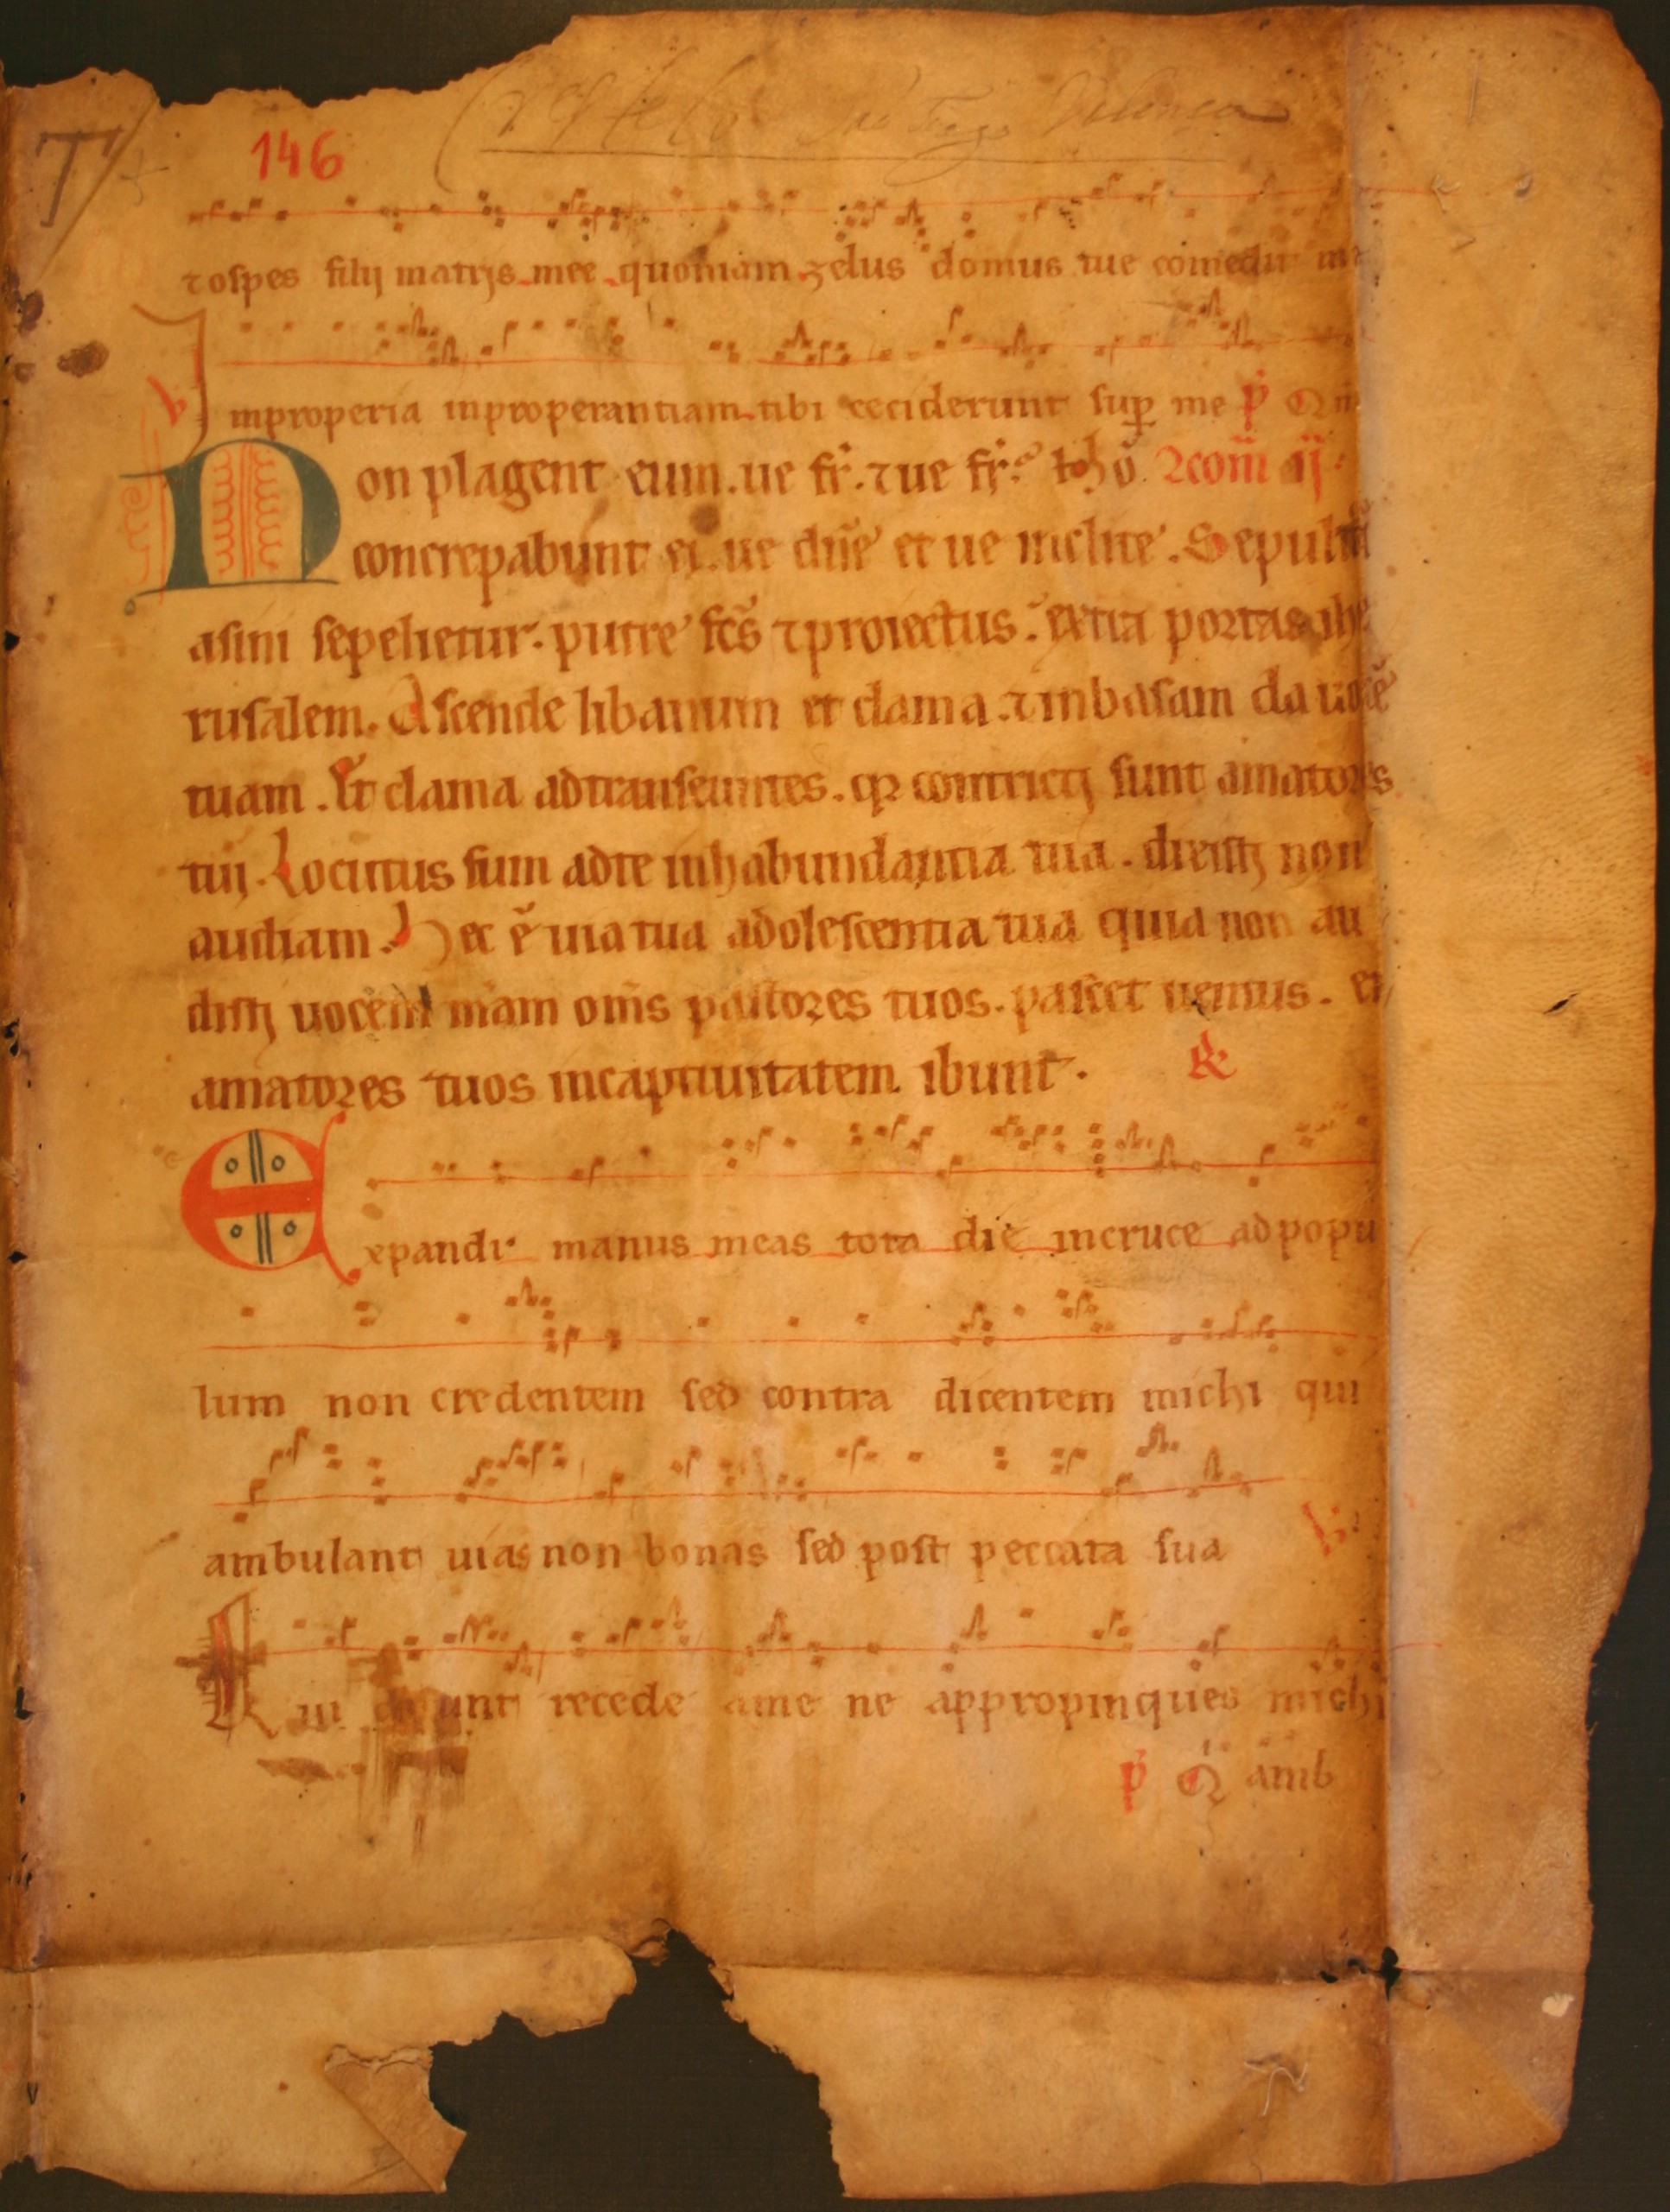 146
⁊ospes filij matrjs mee quoniam zelus domus tue comedit me
V Improperia inproperantiam tibi ceciderunt sup me p̄ Qm̄
Non plagent eum. ue fr̄. ⁊ ue fr̄. Lcom̄ ij
concrepabunt ei. ue dn̄e et ue inclite. Sepult̄
asini sepelietur. putrefc̄s ⁊ proiectus. extra portas ihe
rusalem. Ascende libanum et clama. ⁊ in basam da uocē
tuam. Et clama ad transeuntes. qr contrictj sunt amatores
tuj. Locutus sum ad te in habundantia tua. dixistj non
audiam. Hec ē uia tua adolescentia tua quia non au
distj uocem mam om̄s pastores tuos. pascet uentus. et
amatores tuos in captiuitatem ibunt. R
Expandi manus meas tota die in cruce ad popu
lum non credentem sed contra dicentem michi qui
ambulant uias non bonas sed post peccata sua V
Qui dicunt recede a me ne appropinques michi
p̄ Q̄ amb